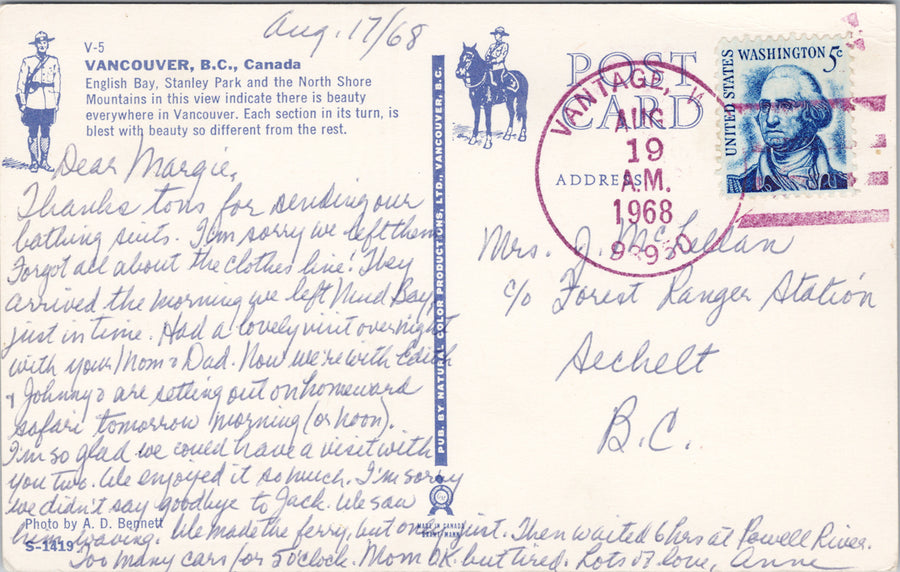 Aug. 17/68
V-5
VANCOUVER, B.C., Canada
English Bay, Stanley Park and the North Shore
Mountains in this view indicate there is beauty
everywhere in Vancouver. Each section in its turn, is
blest with beauty so different from the rest.
Dear Margie,
Thanks tons for sending our
bathing suits. I'm sorry we left them
Forgot all about the clothes line! They
arrived the morning we left Mud Bay,
just in time. Had a lovely visit overnight
with your Mom & Dad. Now we're with Edith
& Johnny & are setting out on homeward
safari tomorrow morning (or noon).
I'm so glad we could have a visit with
you two. We enjoyed it so much. I'm sorry
we didn't say goodbye to Jack. We saw
him waving. We made the ferry, but only just. Then waited 6 hrs at Powell River.
Too many cars for 5 o'clock. Mom OK but tired. Lots of love, Anne
Photo by A. D. Bennett
S-1419
PUB. BY NATURAL COLOR PRODUCTIONS, LTD., VANCOUVER, B.C.
MADE IN CANADA
POST
CARD
ADDRESS
VANTAGE, W
AUG
19
A.M.
1968
98950
UNITED STATES
WASHINGTON 5c
Mrs. J. McLellan
c/o Forest Ranger Station
Sechelt
B.C.